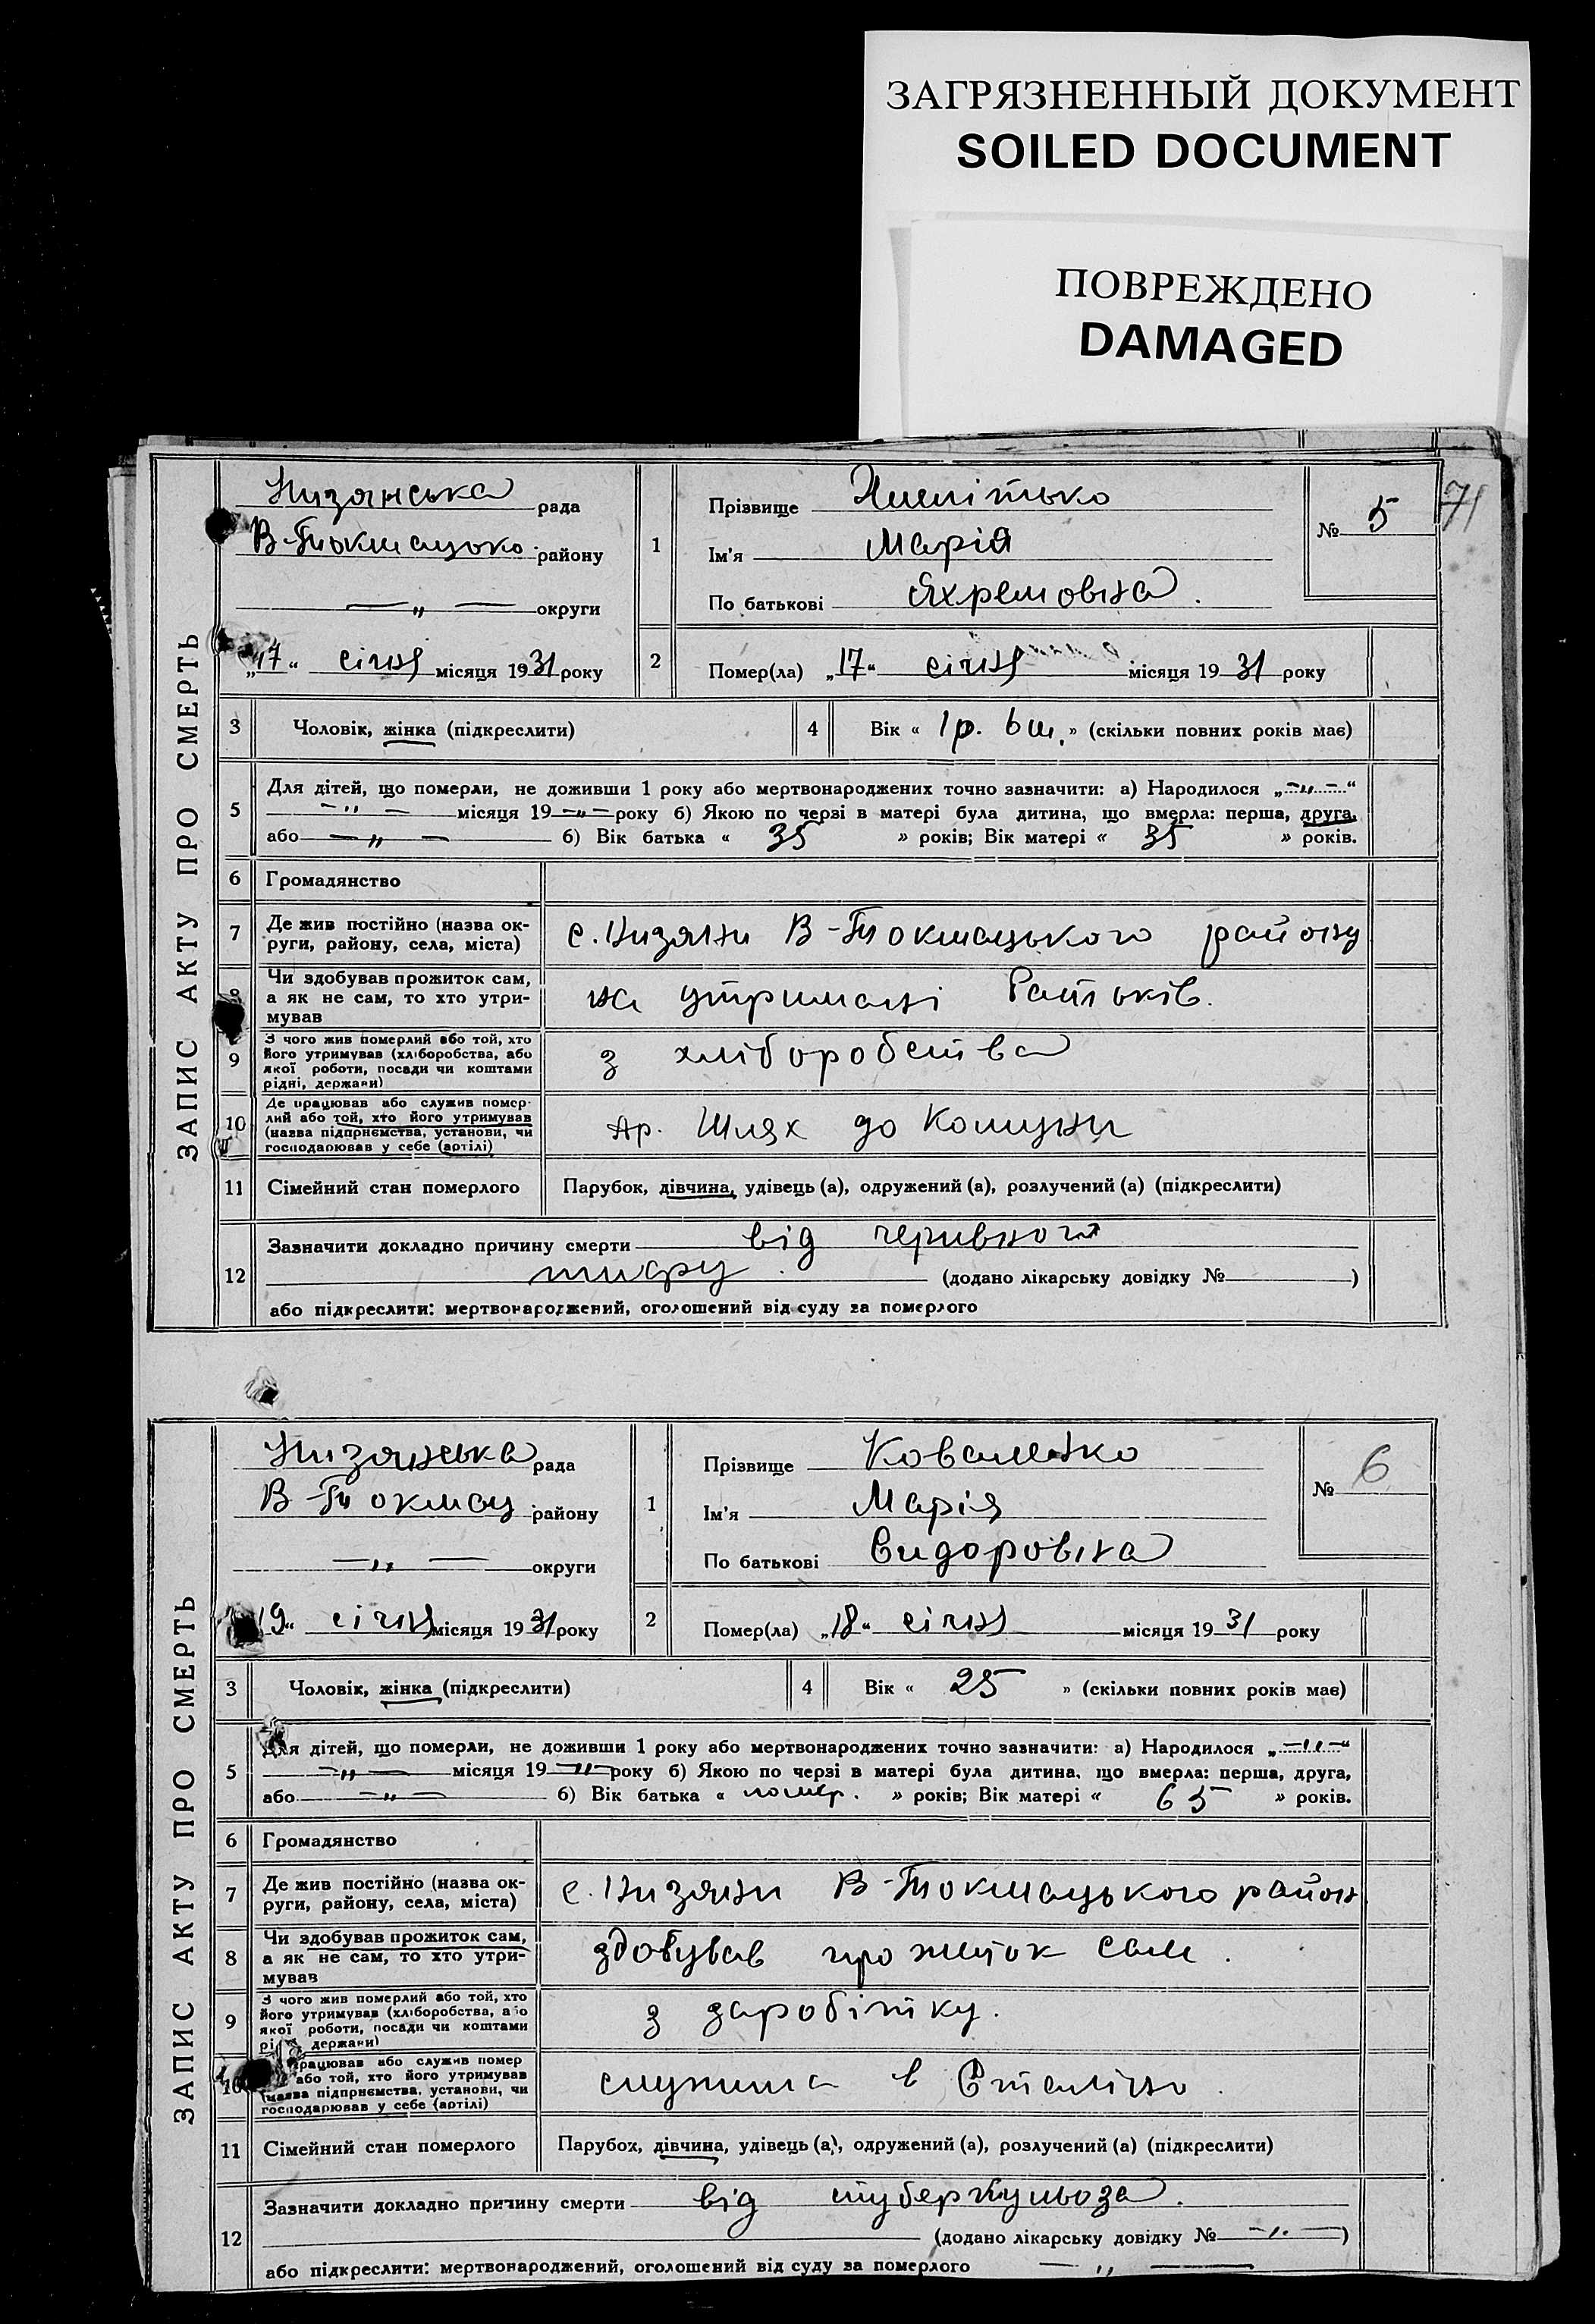 ЗАГРЯЗНЕННЫЙ ДОКУМЕНТ
SOILED DOCUMENT
ПОВРЕЖДЕНО
DAMAGED
71
ЗАПИС АКТУ ПРО СМЕРТЬ
Низянська рада
В-Токмацько району
—„— округи
„17“ січня місяця 1931 року
1
Прізвище
Ім'я Марія
По батькові Яхремовна.
№ 5
2
Помер(ла) „17“ січня місяця 1931 року
3 Чоловік, жінка (підкреслити)
4 Вік « 1 р. 6 м. » (скільки повних років має)
5
Для дітей, що померли, не доживши 1 року або мертвонароджених точно зазначити: а) Народилося „—„—“
—„— місяця 19—„—року б) Якою по черзі в матері була дитина, що вмерла: перша, друга,
або —„— б) Вік батька « 35 » років; Вік матері « 35 » років.
6 Громадянство
7 Де жив постійно (назва ок-
руги, району, села, міста)
с. Низяни В-Токмацького району
8
Чи здобував прожиток сам,
а як не сам, то хто утри-
мував
на утримані батьків.
9
З чого жив померлий або той, хто
його утримував (хліборобства, або
якої роботи, посади чи коштами
рідні, держави)
з хліборобства
10
Де працював або служив помер-
лий або той, хто його утримував
(назва підприємства, установи, чи
господарював у себе (артілі)
Ар. Шлях до Комуни
11 Сімейний стан померлого
Парубок, дівчина, удівець (а), одружений (а), розлучений (а) (підкреслити)
12
Зазначити докладно причину смерти від черивного
тифу. (додано лікарську довідку № )
або підкреслити: мертвонароджений, оголошений від суду за померлого
ЗАПИС АКТУ ПРО СМЕРТЬ
Низянська рада
В-Токмац. району
—„— округи
19“ січня місяця 1931 року
1
Прізвище Коваленко
Ім'я Марія
По батькові Сидоровна
№ 6
2
Помер(ла) „18“ січня місяця 1931 року
3 Чоловік, жінка (підкреслити)
4 Вік « 25 » (скільки повних років має)
5
Для дітей, що померли, не доживши 1 року або мертвонароджених точно зазначити: а) Народилося „—„—“
—„— місяця 19—„—року б) Якою по черзі в матері була дитина, що вмерла: перша, друга,
або —„— б) Вік батька « помер. » років; Вік матері « 65 » років.
6 Громадянство
7 Де жив постійно (назва ок-
руги, району, села, міста)
с. Низяни В-Токмацького район
8
Чи здобував прожиток сам,
а як не сам, то хто утри-
мував
здобував прожиток сам.
9
З чого жив померлий або той, хто
його утримував (хліборобства, або
якої роботи, посади чи коштами
рі держави)
з заробітку.
10
працював або служив помер
або той, хто його утримував
(назва підприємства, установи, чи
господарював у себе (артілі)
служила в Сталіно.
11 Сімейний стан померлого
Парубок, дівчина, удівець (а), одружений (а), розлучений (а) (підкреслити)
12
Зазначити докладно причину смерти від туберкульоза.
(додано лікарську довідку № —„—)
або підкреслити: мертвонароджений, оголошений від суду за померлого —„—